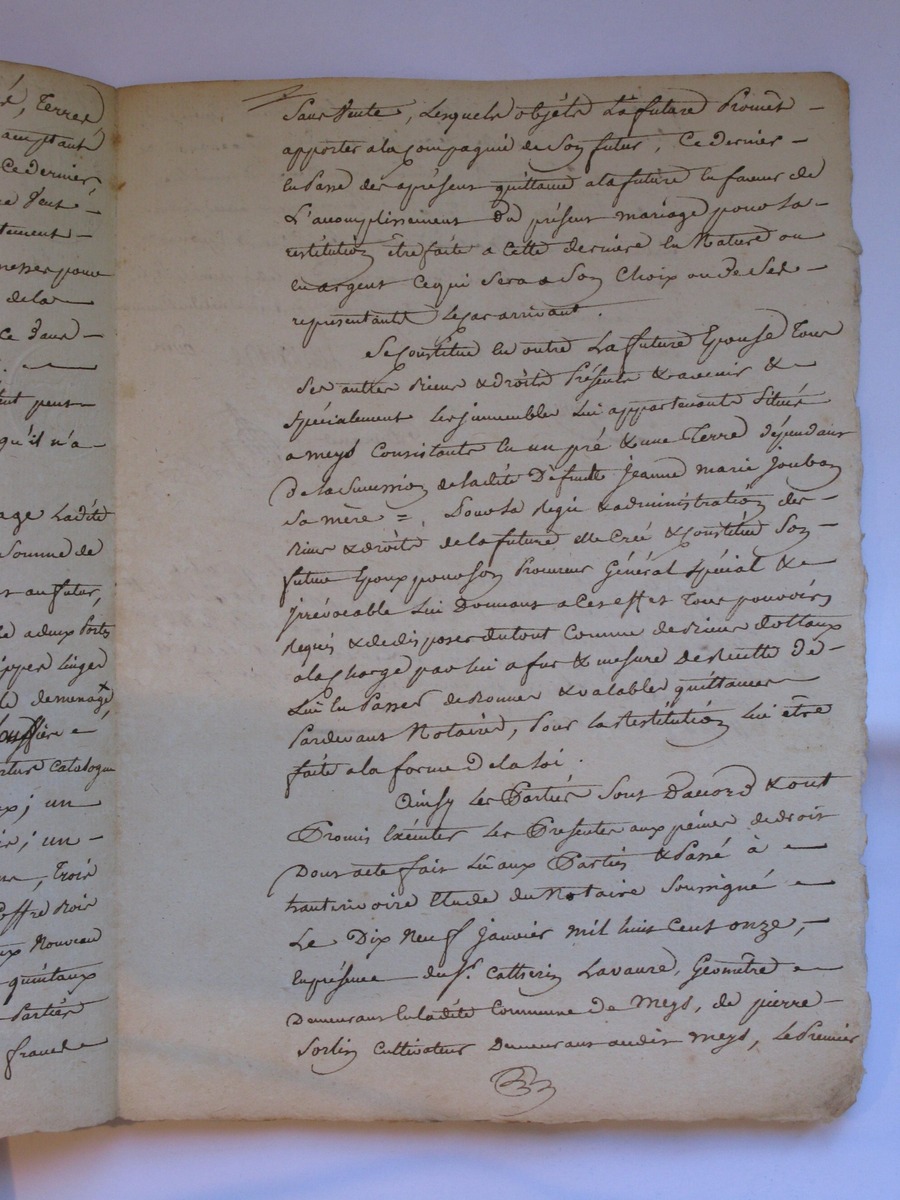 é, Terres
acceptant
ce dernier,
tement
de la
ce dans
peut
qu'il n'a
age Ladite
Somme de
au futur,
a deux Portes
linger
de demenage
catalogue
ux; un
un
Trois
Coffre Noir
ux Nouveau
quintaux
Parties
Sans Vente, Lesquels objéts La future Promet
apporter a la Compagnie de Son futur, Ce dernier
En Passe des aprésent quittance a la future En faveur de
L'acomplissement du présent mariage pour La
restitution être faite a Cette derniere En Nature ou
En argent Ce qui Sera a Son Choix ou de Ses
representants Le Cas arrivant.
Se Constitue En outre La future Epouse Tous
Ses autres Biens & droits Présents & avenir &
Spécialement Les immeubles Lui appartenants Situés
a meys Consistants En un pré & une Terre dépendants
De la Succession de Ladite Defunte Jeanne marie Jouban
Sa mère =. Pour La Regie & administration des
Biens & droits de la future Elle Créé & Constitue Son
futur Epoux pour Son Procureur Général Spécial &
irrévocable Lui Donnant a Ces effets Tous pouvoirs
Requis & de disposer du tout Comme de Biens dottaux
a la Charge par lui a fur & mesure De Recette De
Lui En Passer de Bonnes & valables quittances
Pardevant Notaires, Pour La Restitution Lui être
faite a la forme De la Loi.
Ainsy Les Parties Sont D'acord & ont
Promis Exécuter Les Presentes aux peines de droit
Dont acte fait Lû aux Parties & Passé à
hauterivoire Etude du Notaire Soussigné
Le Dix Neuf janvier mil huit Cent onze,
En présence du Sr. Catherin Lavaure, Geomètre
Demeurant En Ladite Commune De Meys, de pierre
Sorlin Cultivateur Demeurant audit Meys, Le Premier